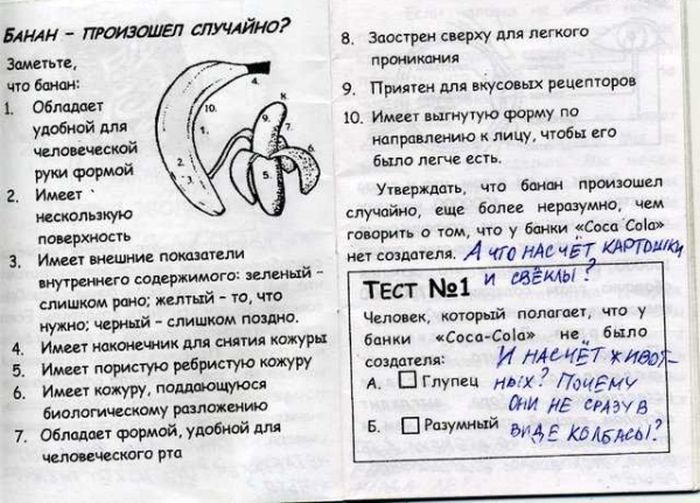 БАНАН – ПРОИЗОШЕЛ СЛУЧАЙНО?
Заметьте,
что банан:
1. Обладает
удобной для
человеческой
руки формой
2. Имеет
нескользкую
поверхность
3. Имеет внешние показатели
внутреннего содержимого: зеленый –
слишком рано; желтый – то, что
нужно; черный – слишком поздно.
4. Имеет наконечник для снятия кожуры
5. Имеет пористую ребристую кожуру
6. Имеет кожуру, поддающуюся
биологическому разложению
7. Обладает формой, удобной для
человеческого рта
4.
10.
1.
3.
2.
8.
9.
7.
6.
5.
8. Заострен сверху для легкого
проникания
9. Приятен для вкусовых рецепторов
10. Имеет выгнутую форму по
направлению к лицу, чтобы его
было легче есть.
Утверждать, что банан произошел
случайно, еще более неразумно, чем
говорить о том, что у банки «Coca Cola»
нет создателя. А ЧТО НАСЧЁТ КАРТОШКИ
И СВЁКЛЫ?
ТЕСТ №1
Человек, который полагает, что у
банки «Coca-Cola» не было
создателя:
И НАСЧЁТ ЖИВОТ-
А. Глупец НЫХ? ПОЧЕМУ
ОНИ НЕ СРАЗУ В
Б. Разумный ВИДЕ КОЛБАСЫ?